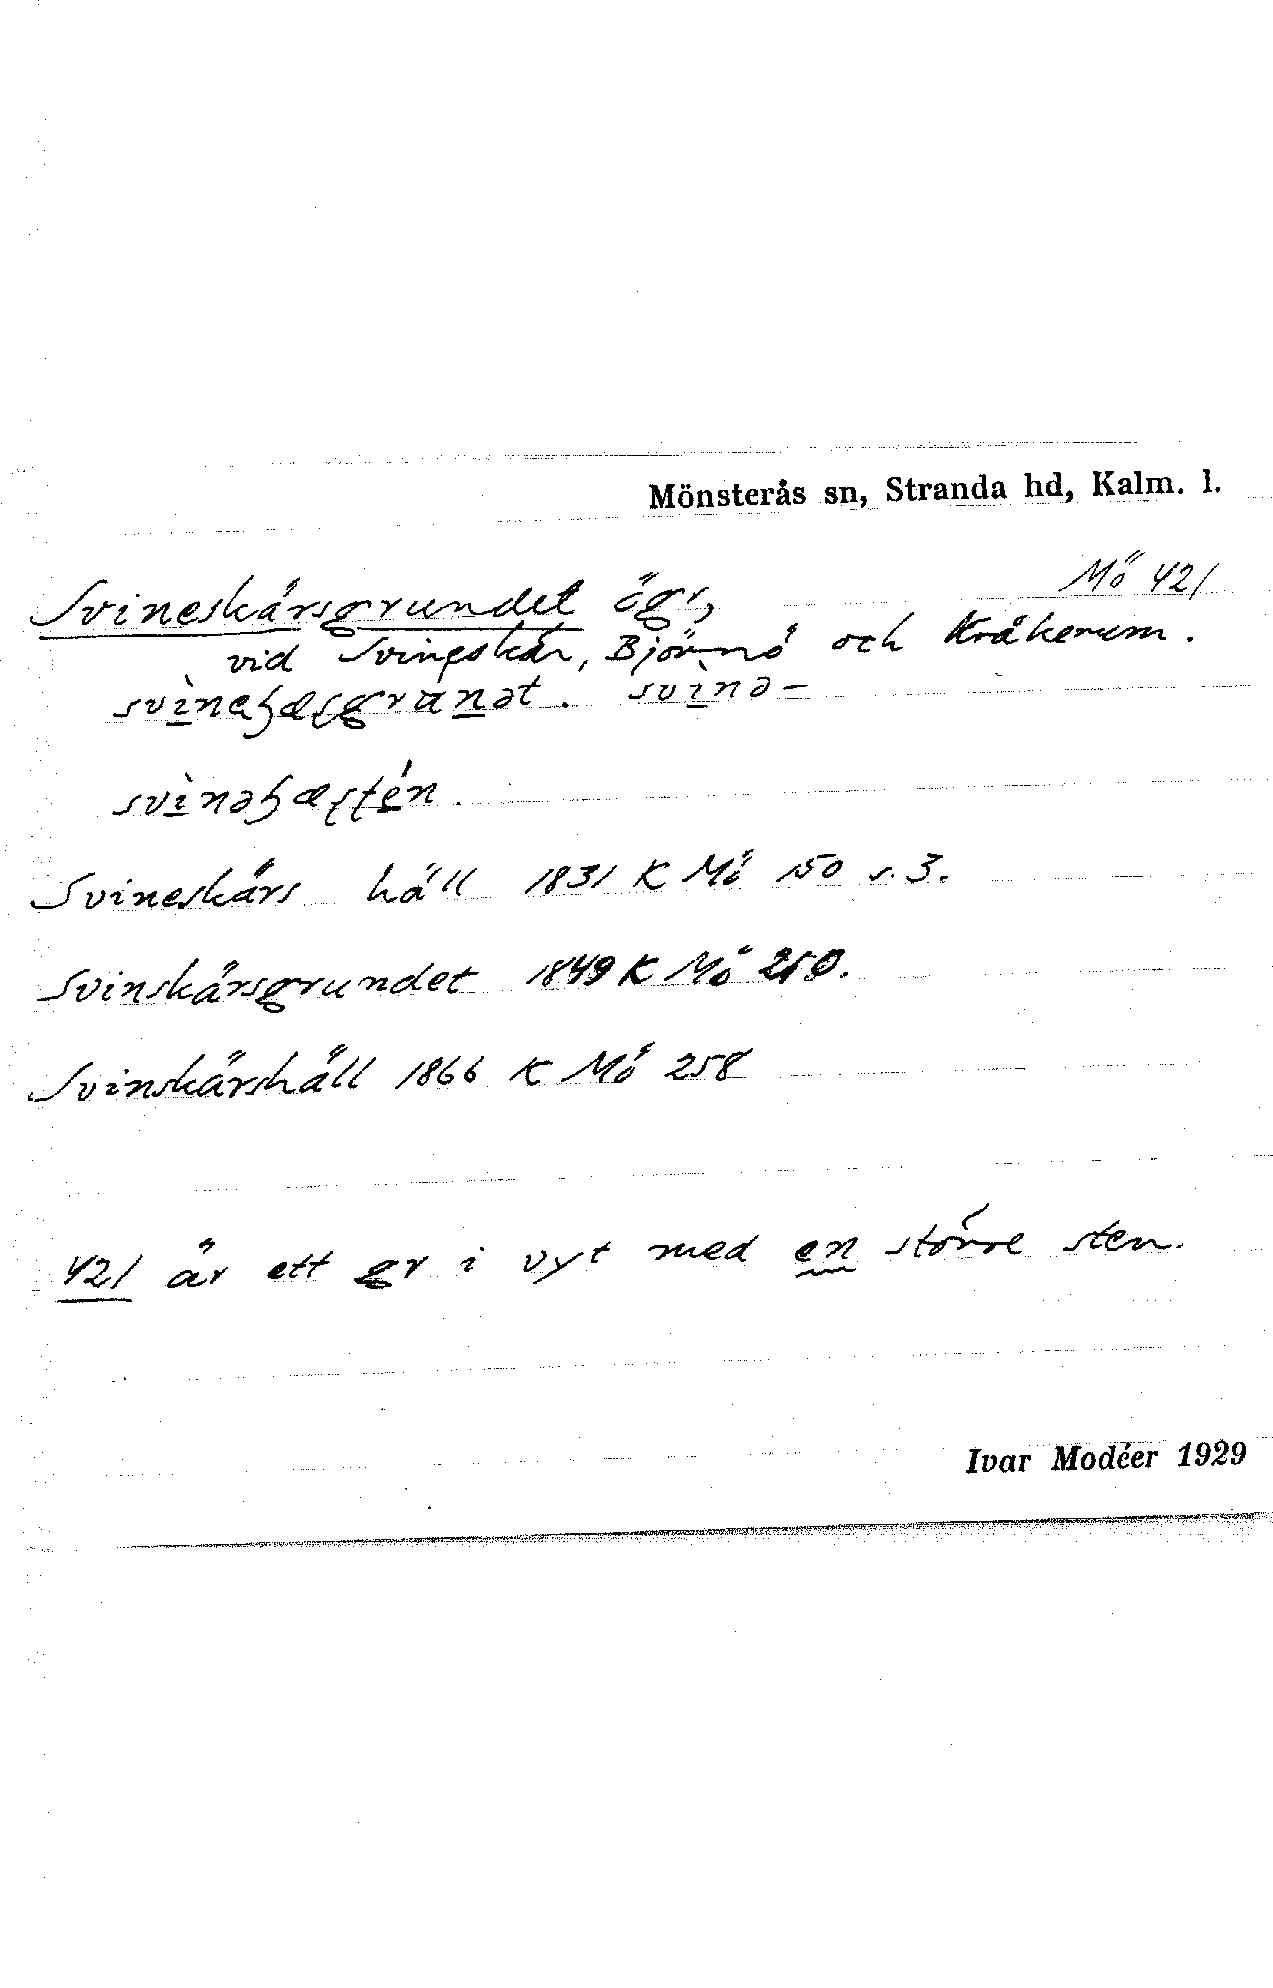 Mönsterås sn, Stranda hd, Kalm. l.
Mö 421
Svineskärsgrundet ög,
vid Svineskär, Björnö och Kråkerum.
svinə-
Svineskärs häll 1831 K Mö 150 s. 3.
Svinskärsgrundet 1849 K Mö 250.
Svinskärshäll 1866 K Mö 258
421 är ett gr i vyt med en större sten.
Ivar Modéer 1929